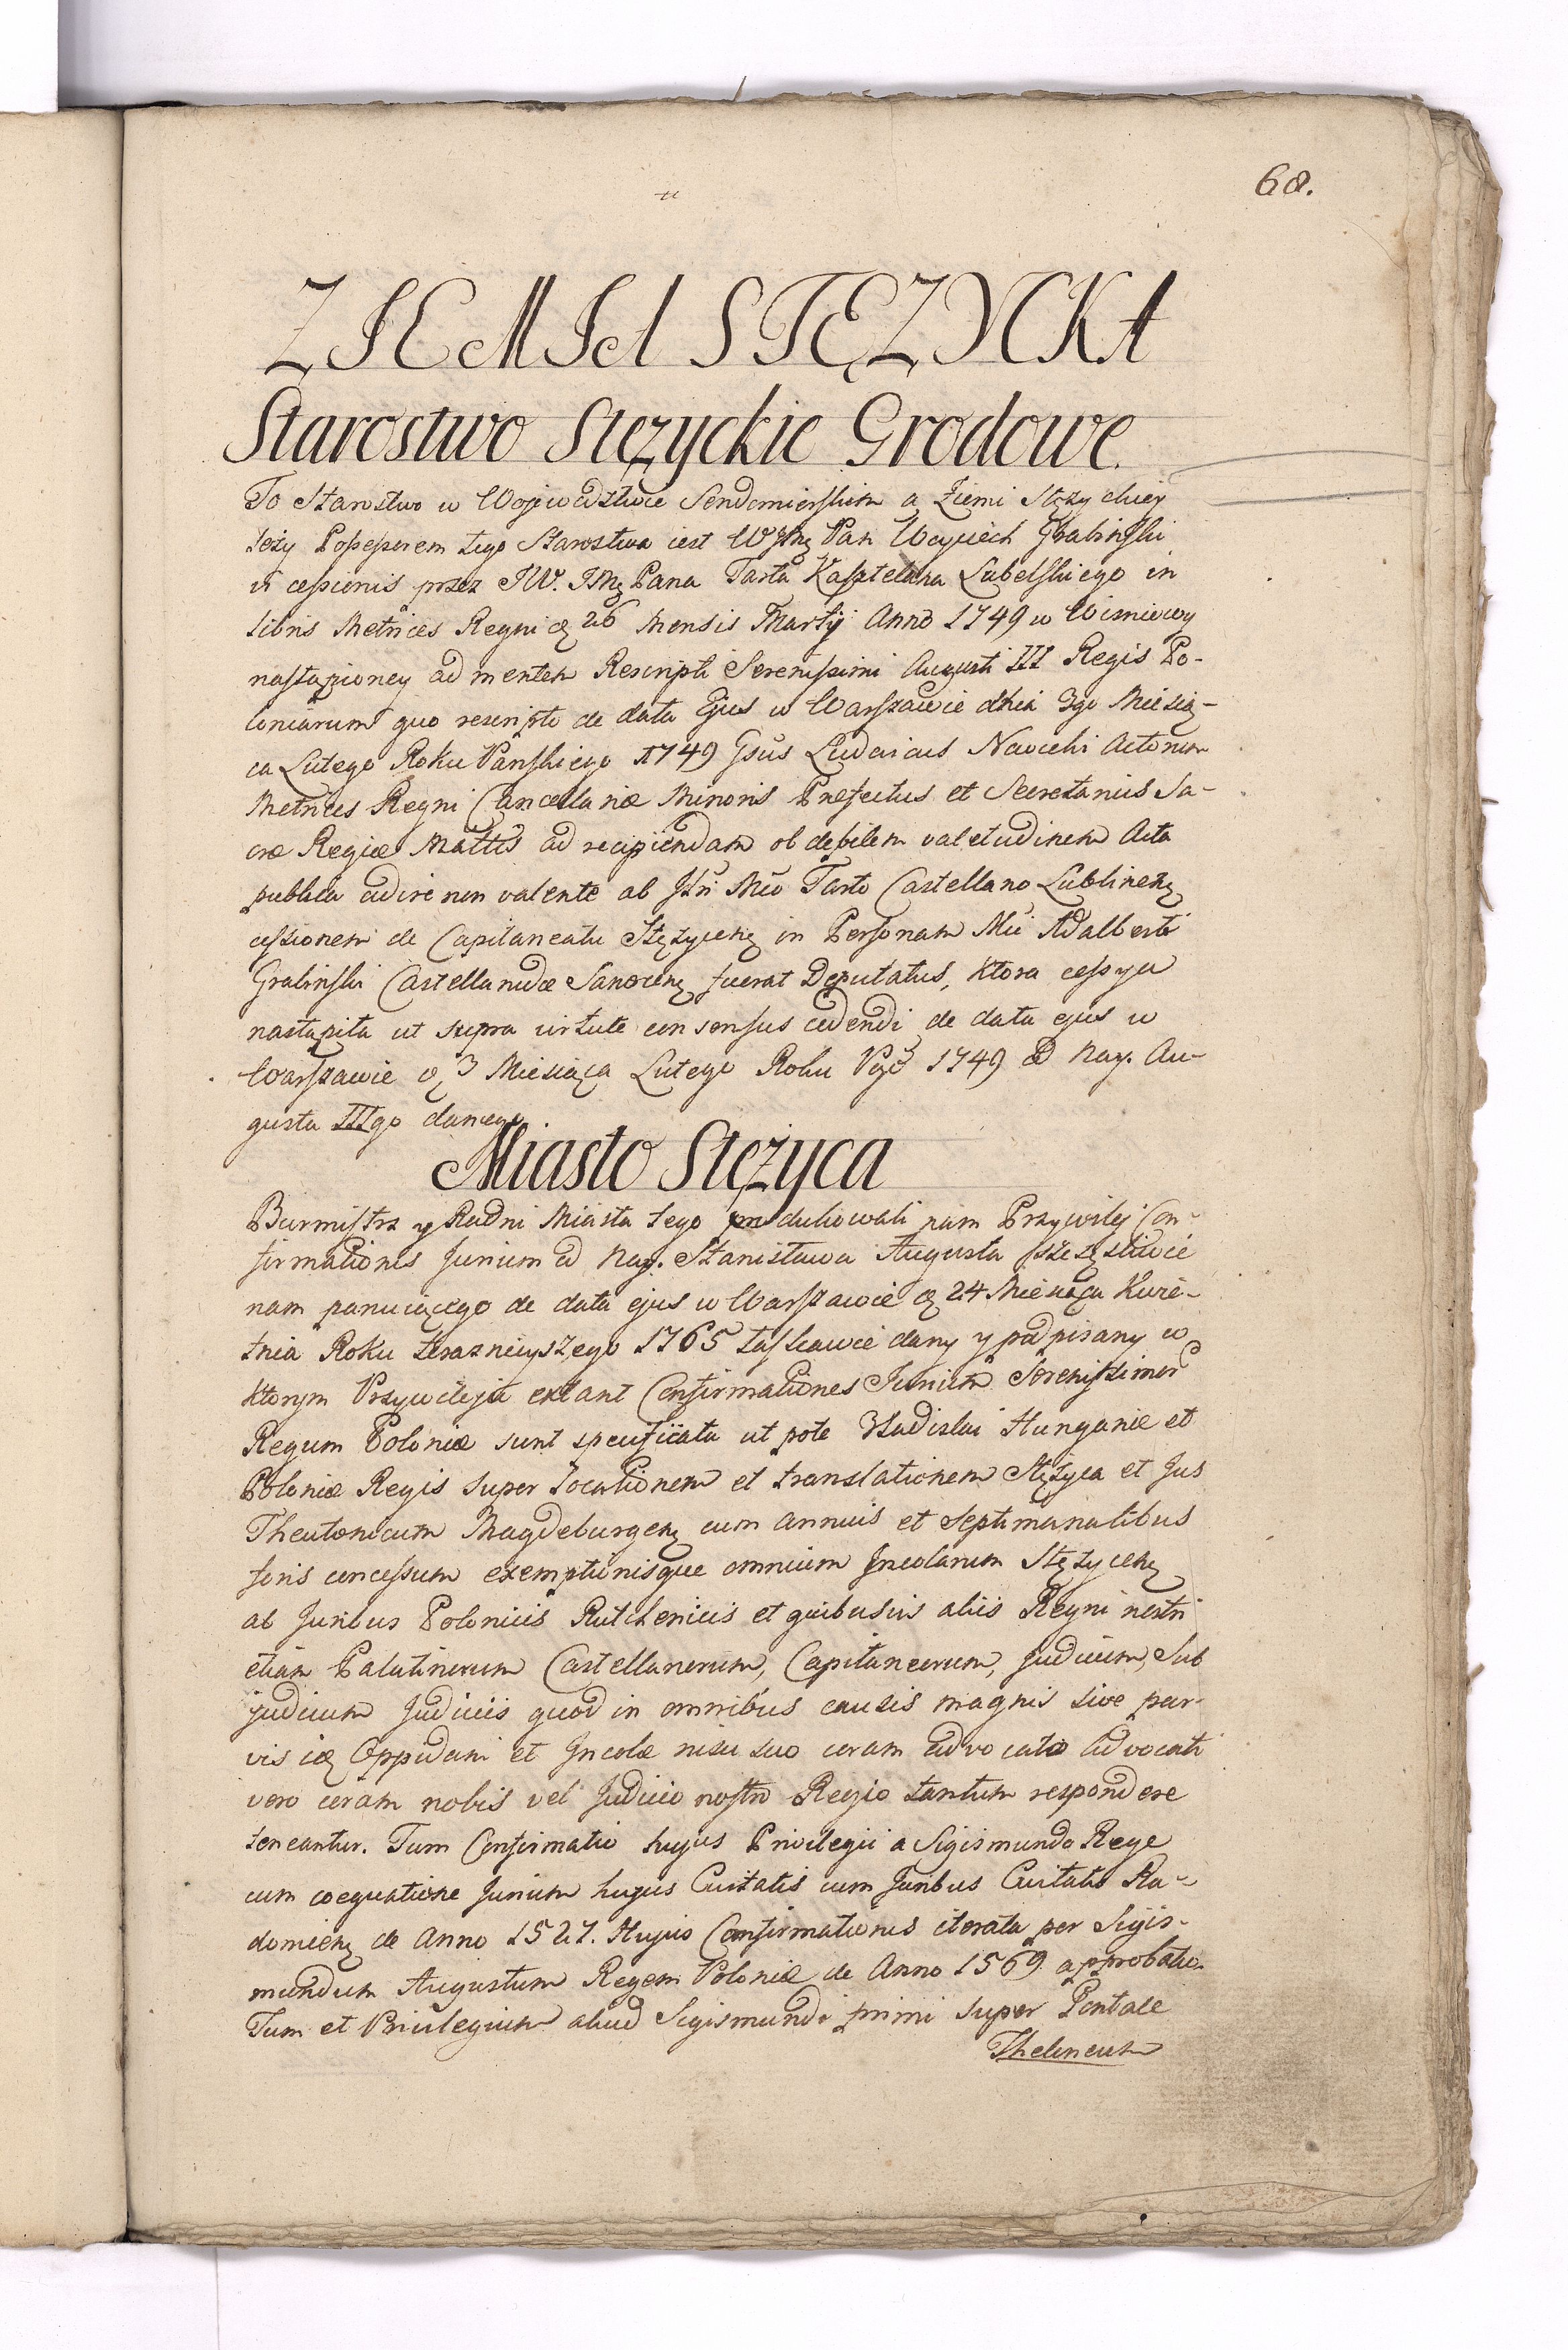 68.
ZIEMIA STĘZYCKA
Starostwo Stęzyckie Grodowe.
To Starostwo w Wojewodztwie Sendomirskim a Ziemi Stęzyckiey
leży Possessorem tego Starostwa iest WJmę Pan Woyciech Grabinski
vi cessionis przez JW. JMę Pana Tarła Kasztelana Lubelskiego in
libris Metrices Regni ą 26 Mensis Martij Anno 1749 w Wisniowy
nastąpioney ad mentem Rescripti Serenissimi Augusti III Regis Po-
loniarum quo rescripto de data Ejus w Warszawie dnia 3go Miesią-
ca Lutego Roku Panskiego 1749 Gsus Ludovicus Nowicki Actorum
Metrices Regni Cancellariæ Minoris Præfectus et Secretarius Sa-
cræ Regiæ Mattis ad recipiendam ob debilem valetudinem Acta
publica adire non valente ab Jllri Mco Tarło Castellano Lublinenę
cessionem de Capitaneatu Stężycenę in Personam Mci Adalberti
Grabinski Castellanidæ Sanocenę fuerat Deputatus, ktora cessya
nastąpiła ut supra virtute consensus cedendi de data ejus w
Warszawie ą 3 Miesiąca Lutego Roku Pgo 1749 od Nay. Au-
gusta IIIgo danego
Miasto Stężyca
Burmistrz y Radni Miasta tego produkowali nam Przywiley Con-
firmationis Jurium od Nay. Stanisława Augusta szczęsliwie
nam panuiącego de data ejus w Warszawie ą 24 Miesiąca Kwie-
tnia Roku terazneiyszego 1765 łaskawie dany y podpisany w
ktorym Przywileju extant Confirmationes Jurium Serenissimor
Regum Poloniæ sunt specificata ut pote Vladislai Hungariæ et
Poloniæ Regis super locationem et translationem Stężyca et Jus
Theutonicum Magdeburgenę cum annuis et septimanalibus
foris concessum exemptionisque omnium Jncolarum Stężycenę
ab Juribus Polonicis Ruthenicis et quibusvis aliis Regni nostri
etiam Palatinorum Castellanorum, Capitaneorum, Judicum, Sub
judicum Judiciis quod in omnibus causis magnis sive par-
vis iidę Oppidani et Jncolæ nisi suo coram advocato Advocati
vero coram nobis vel Judicio nostro Regio tantum respondere
teneantur. Tum Confirmatio hujus Privilegii a Sigismundo Rege
cum coequatione Jurium hujus Civitatis cum Juribus Civitatis Ra-
domienę de Anno 1527. Hujus Confirmationis iterata per Sigis-
mundum Augustum Regem Poloniæ de Anno 1569 approbatio.
Tum et Privilegium aliud Sigismundi primi super Pontale
Theloneum